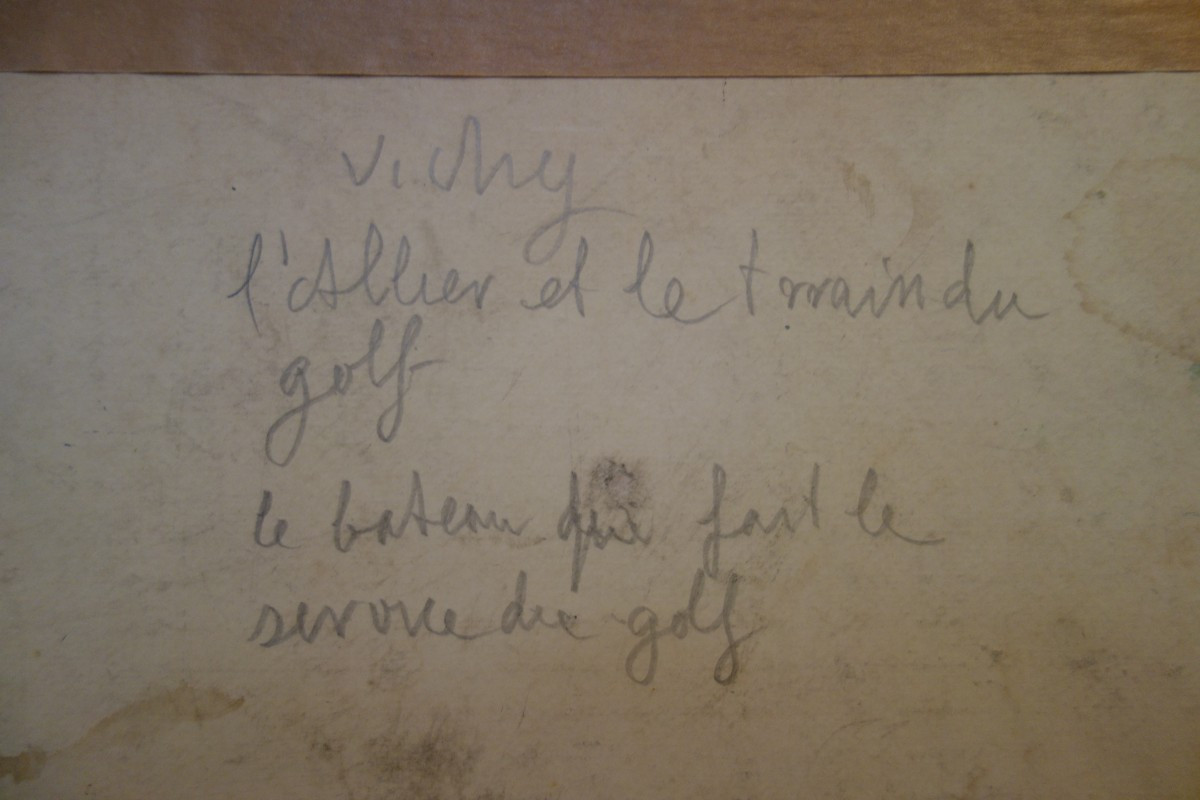 Vichy
l'Allier et le train du
golf
le bateau qui fait le
service du golf